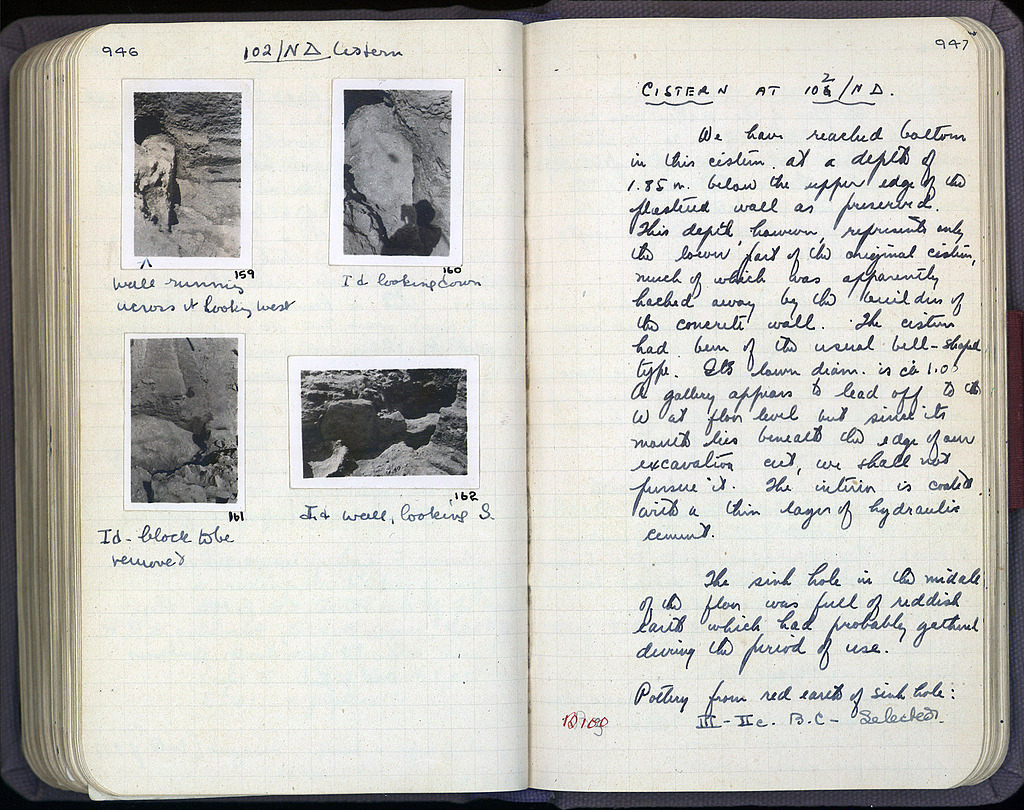 946
102/ΝΔ Cistern
159
wall running
across it looking west
160
Id looking down
161
Id - block to be
removed
162
Id wall, looking S.
947
CISTERN AT 102/ΝΔ.
We have reached bottom
in this cistern at a depth of
1.85 m. below the upper edge of the
plastered wall as preserved.
This depth, however, represents only
the lower part of the original cistern,
much of which was apparently
hacked away by the builders of
the concrete wall. The cistern
had been of the usual bell-shaped
type. Its lower diam. is ca 1.0
A gallery appears to lead off to the
W at floor level but since its
mouth lies beneath the edge of our
excavation cut, we shall not
pursue it. The interior is coated
with a thin layer of hydraulic
cement.
The sink hole in the middle
of the floor was full of reddish
earth which had probably gathered
during the period of use.
Pottery from red earth of sink hole:
III-II c. B.C - Selected.